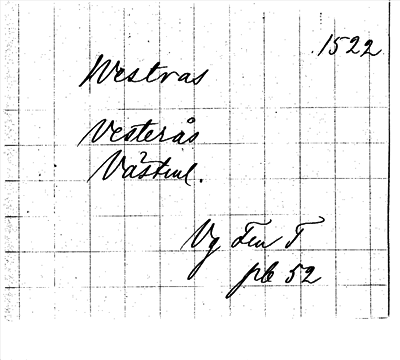 1522
Westras
Vesterås
Västml.
Vg Fen T
pb 52